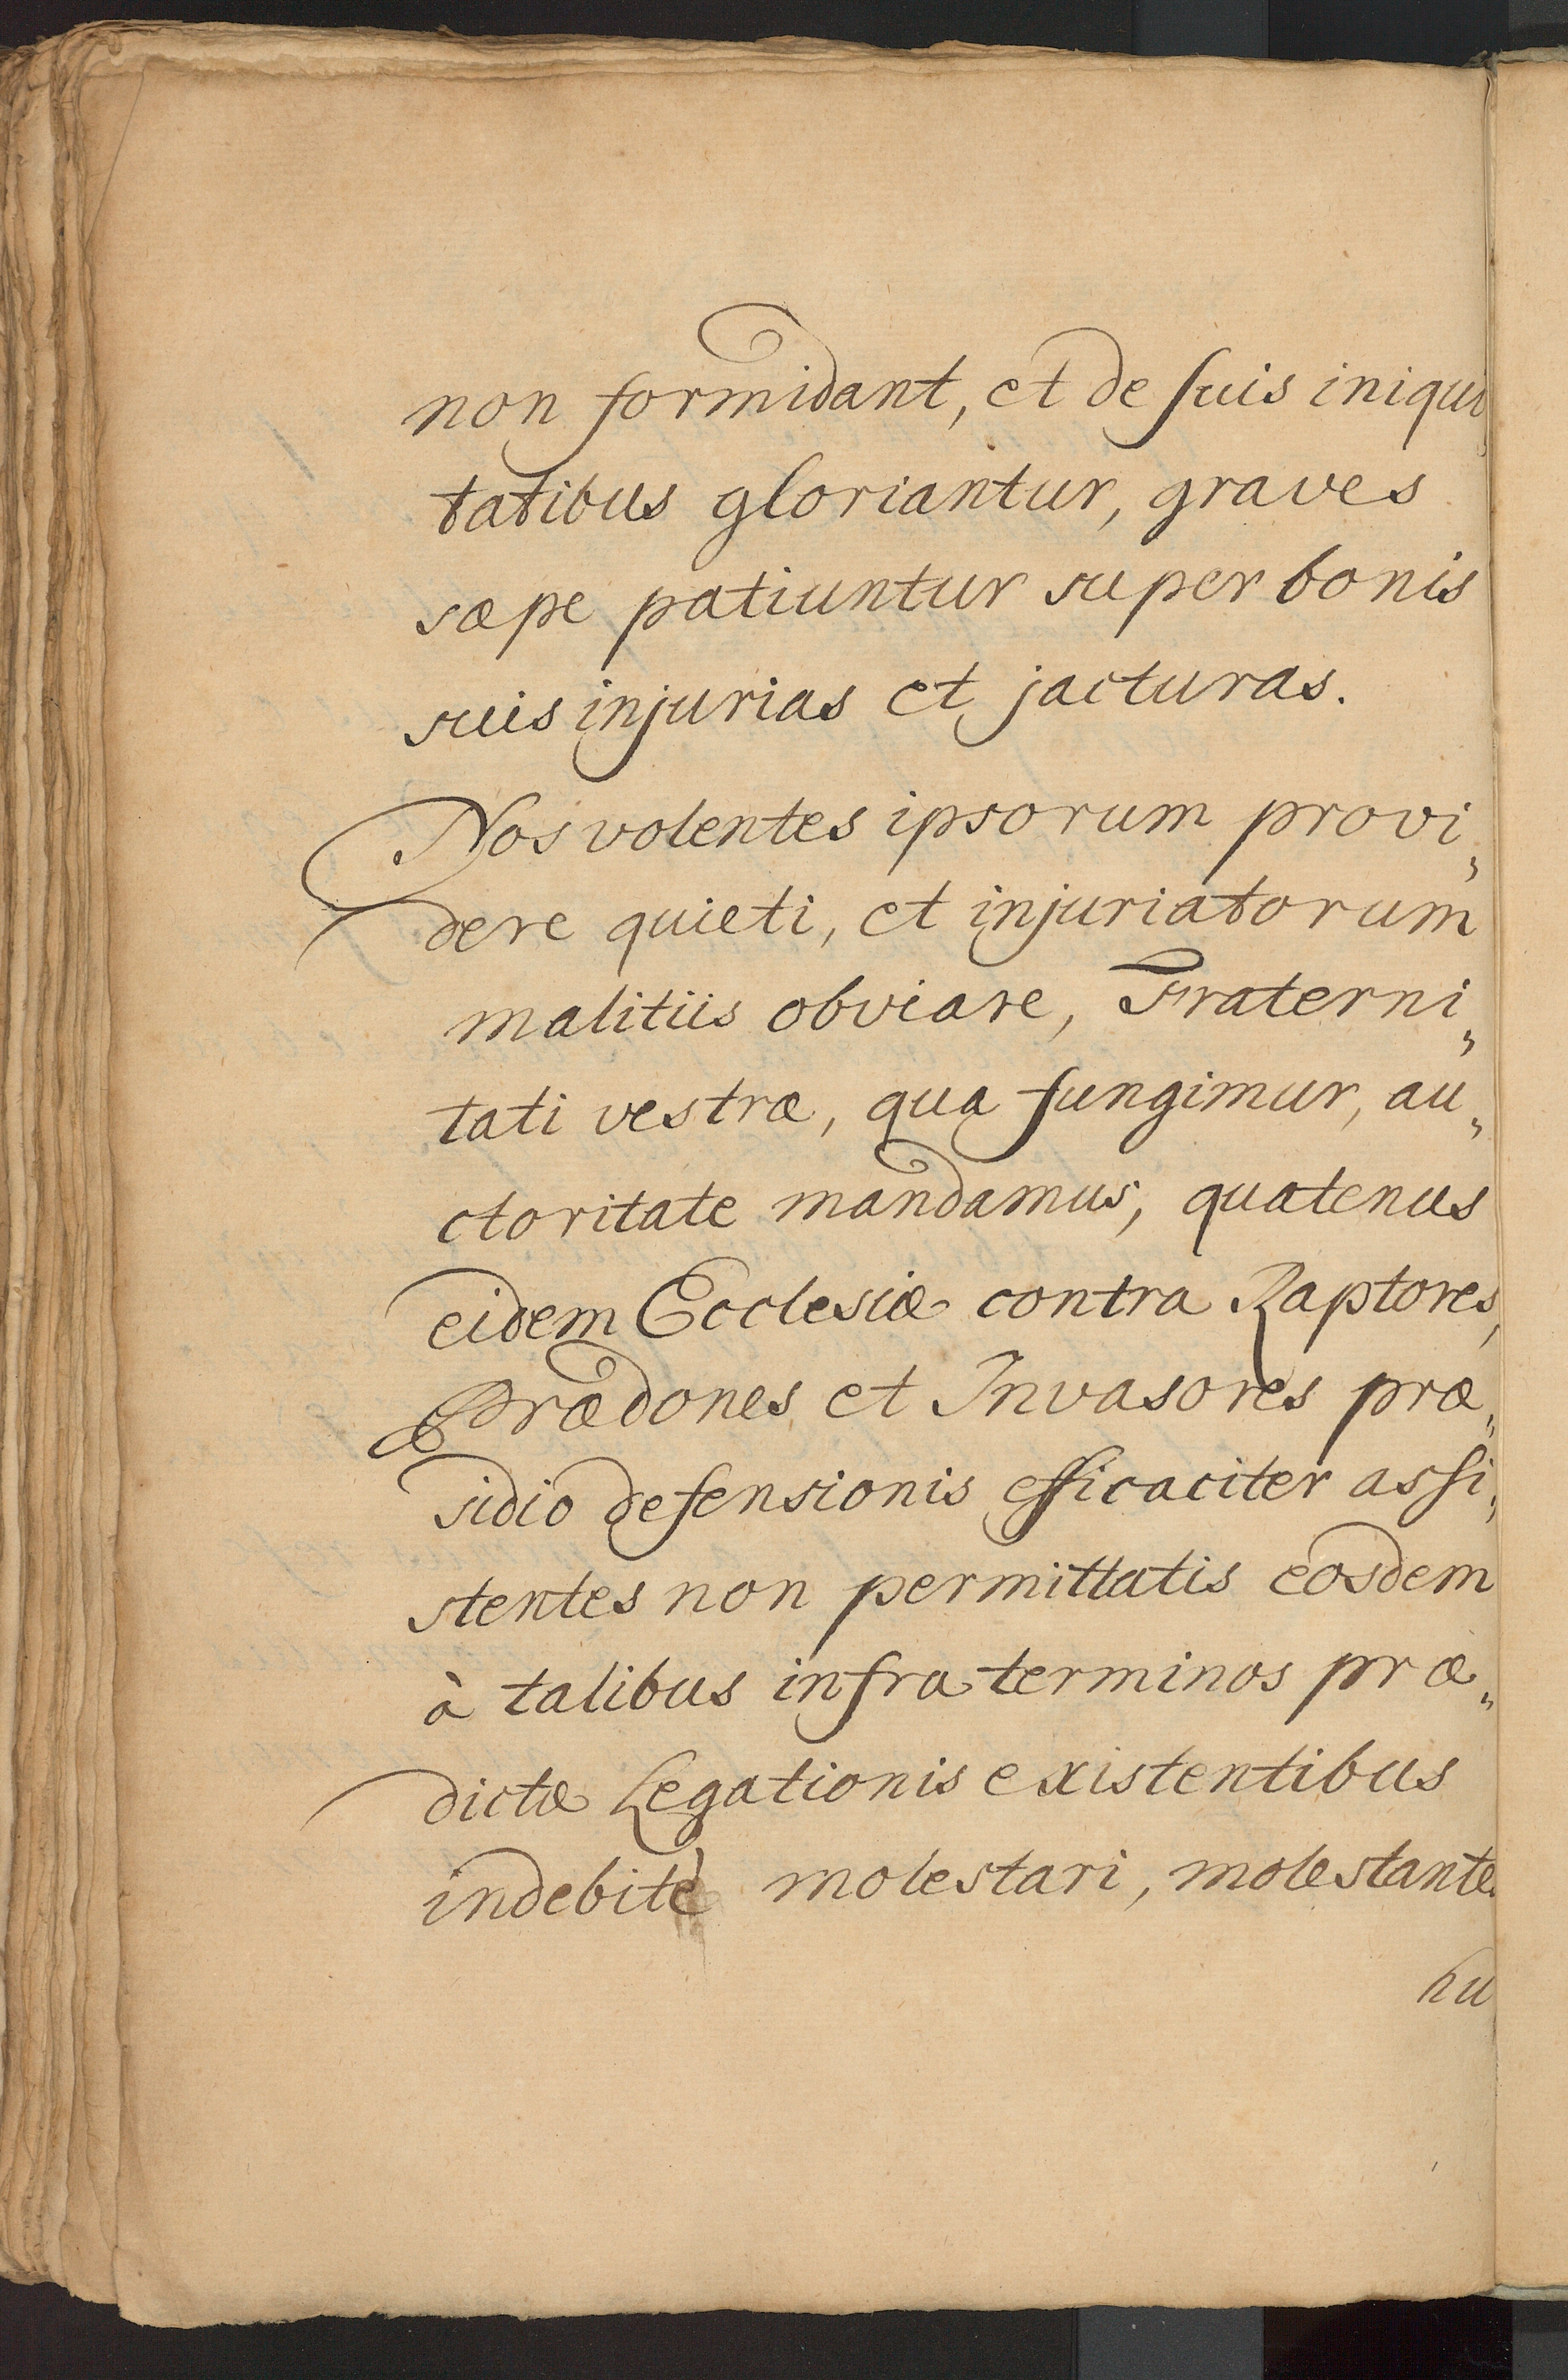 non formidant, et de suis iniqui
tatibus gloriantur, graves
sæpe patiuntur super bonis
suis injurias et jacturas.
Nos volentes ipsorum provi„
dere quieti, et injuriatorum
malitiis obviare, Fraterni„
tati vestræ, qua fungimur, au„
ctoritate mandamus, quatenus
eidem Ecclesiæ contra Raptores,
Prædones et Invasores præ„
sidio defensionis efficaciter assi„
stentes non permittatis eosdem
à talibus infra terminos præ„
dictæ Legationis existentibus
indebitè molestari, molestantes
hu